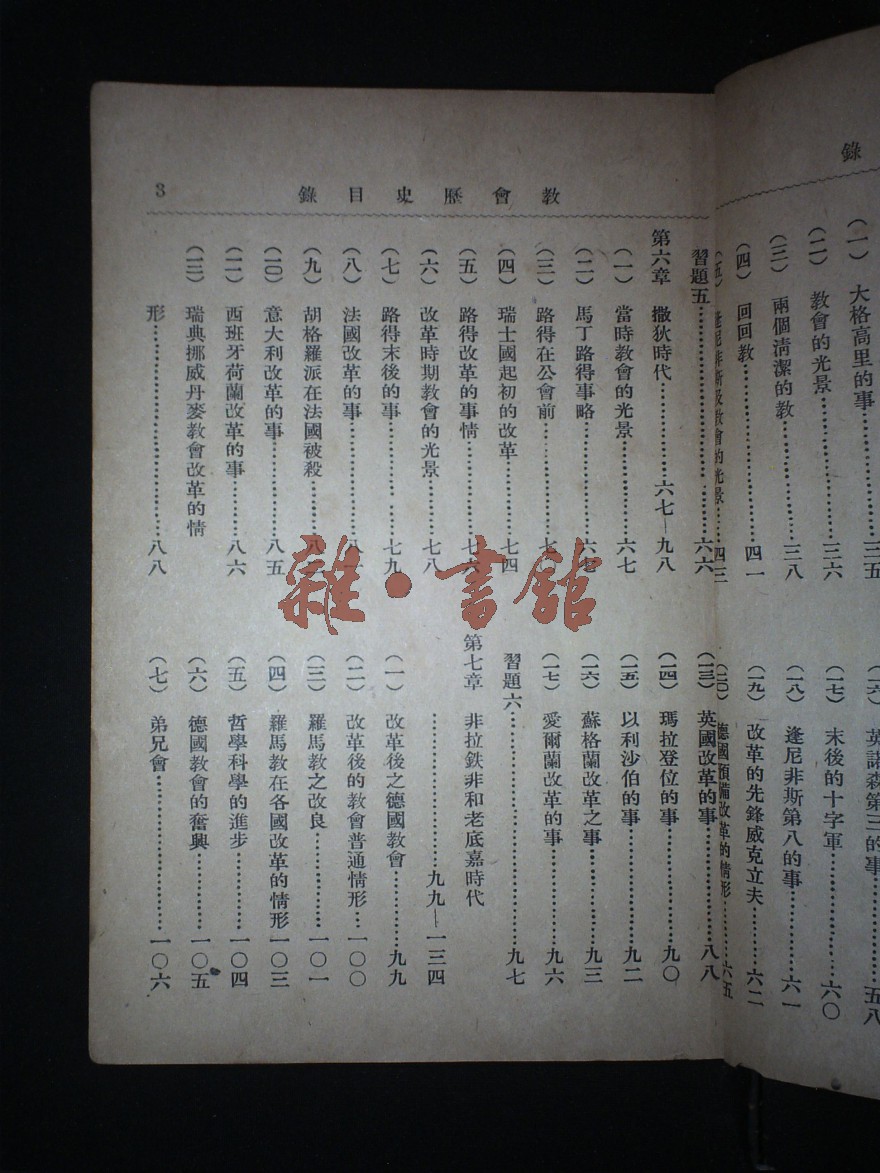 錄
(一)大格高里的事……三五
(二)教會的光景……三六
(三)兩個清潔的教……三八
(四)回回教……四一
(五)逢尼非斯級教會的光景……四三
(一六)英諾森第三的事……五八
(一七)末後的十字軍……六〇
(一八)逢尼非斯第八的事……六一
(一九)改革的先鋒威克立夫……六二
(二〇)德國預備改革的情形……六五
教會歷史目錄
3
習題五……六六
第六章 撒狄時代……六七—九八
(一)當時教會的光景……六七
(二)馬丁路得事略……六七
(三)路得在公會前……七
(四)瑞士國起初的改革……七四
(五)路得改革的事情……七六
(六)改革時期教會的光景……七八
(七)路得末後的事……七九
(八)法國改革的事……八
(九)胡格羅派在法國被殺……八
(一〇)意大利改革的事……八五
(一一)西班牙荷蘭改革的事……八六
(一二)瑞典挪威丹麥教會改革的情
形……八八
(一三)英國改革的事……八八
(一四)瑪拉登位的事……九〇
(一五)以利沙伯的事……九二
(一六)蘇格蘭改革之事……九三
(一七)愛爾蘭改革的事……九六
習題六……九七
第七章 非拉鉄非和老底嘉時代
……九九—一三四
(一)改革後之德國教會……九九
(二)改革後的教會普通情形……一〇〇
(三)羅馬教之改良……一〇一
(四)羅馬教在各國改革的情形一〇三
(五)哲學科學的進步……一〇四
(六)德國教會的奮興……一〇五
(七)弟兄會……一〇六
雜·書館